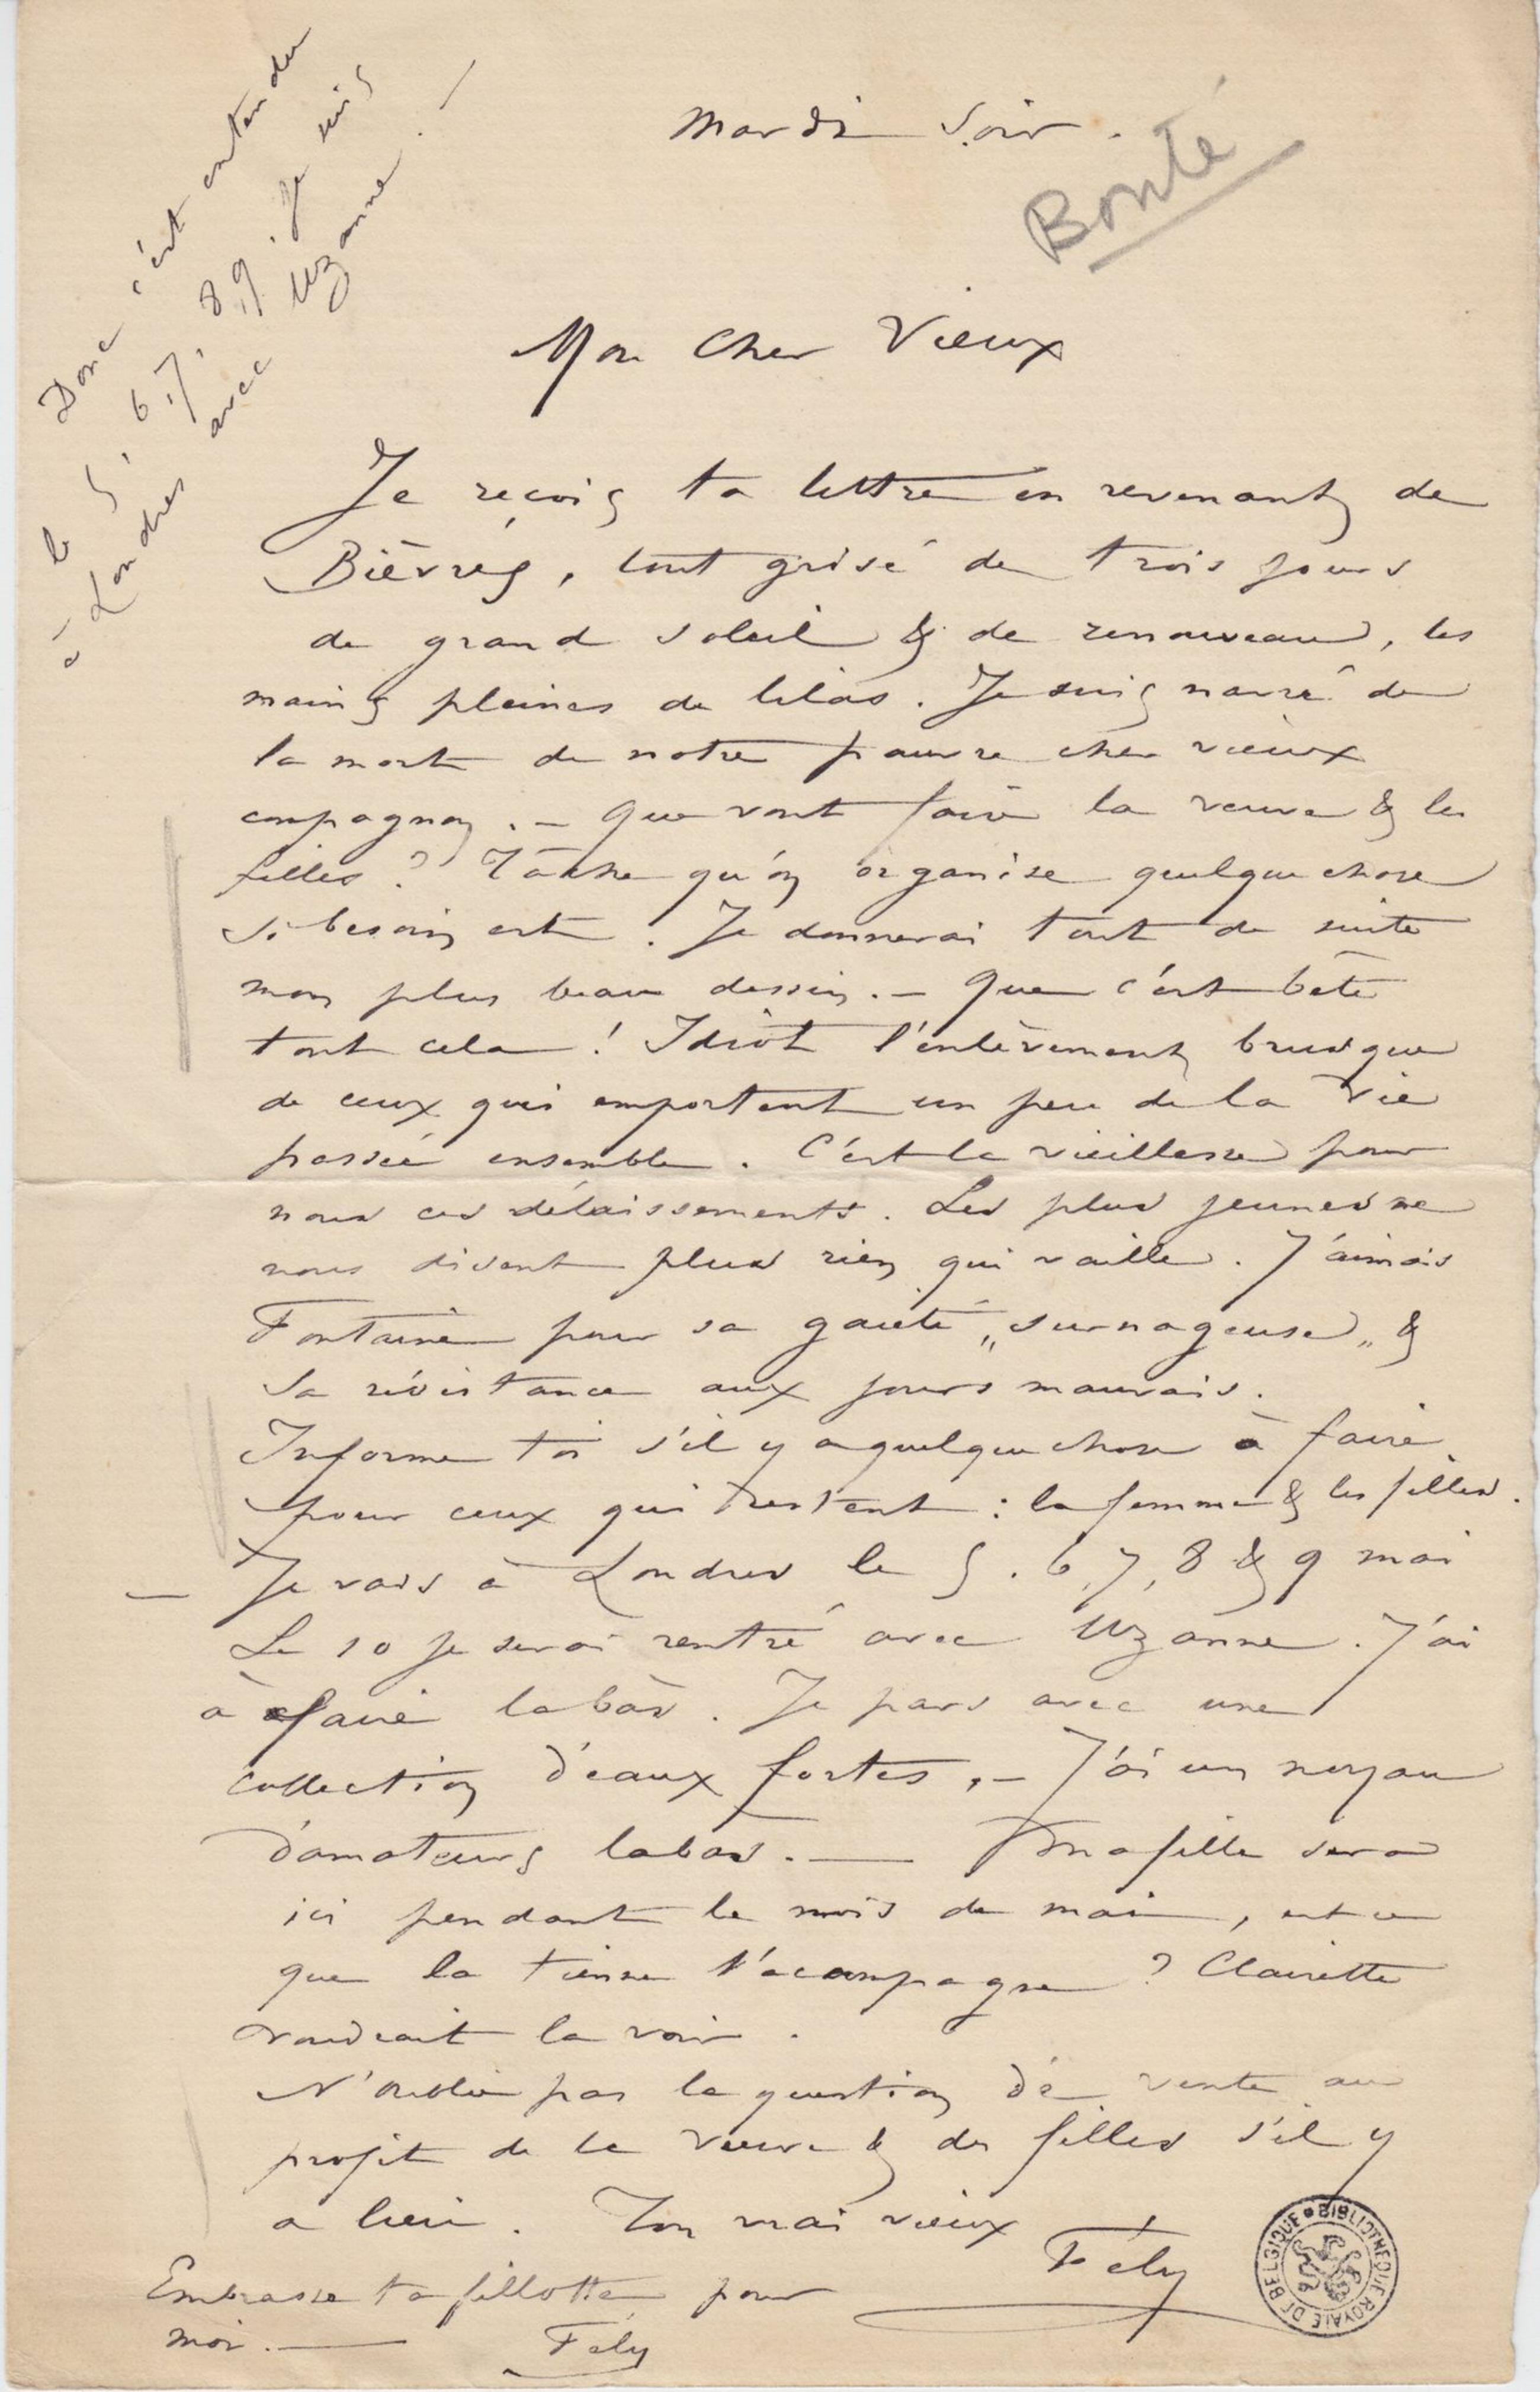 Mardi Soir.
Bonté
Donc c'est entendu
le 5. 6. 7. 8. 9. je suis
à Londres avec Uzanne. —
Mon Cher Vieux
Je reçois ta lettre en revenant de
Bièvres, tout grisé de trois jours
de grand soleil & de renouveau, les
mains pleines de lilas. Je suis navré de
la mort de notre pauvre cher vieux
compagnon. — Que vont faire la veuve & les
filles? Tâche qu'on organise quelque chose
si besoin est. Je donnerai tout de suite
mon plus beau dessin. — Que c'est bête
tout cela! Idiot l'enlèvement brusque
de ceux qui emportent un peu de la Vie
passée ensemble. C'est la vieillesse pour
nous ces délaissements. Les plus jeunes ne
nous disent plus rien qui vaille. J'aimais
Fontaine pour sa gaieté „surnageuse„ &
sa résistance aux jours mauvais.
Informe toi s'il y a quelque chose à faire
pour ceux qui restent : la femme & les filles.
— Je vais à Londres le 5. 6, 7, 8 & 9 mai
Le 10 je serai rentré avec Uzanne. J'ai
à faire labàs. Je pars avec une
collection d'eaux fortes, — J'ai un noyau
d'amateurs labas. — Ma fille sera
ici pendant le mois de mai, est ce
que la tienne t'acompagne? Clairette
voudrait la voir.
N'oublie pas la question de vente au
profit de la veuve & des filles s'il y
a lieu. Ton vrai vieux
Fély
Embrasse ta fillotte pour
moi. — Fély
BIBLIOTHEQUE ROYALE DE BELGIQUE